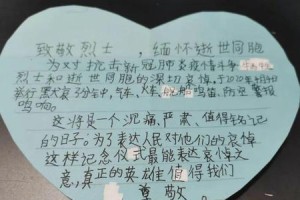 致敬烈士，缅怀逝世同胞
为对抗击新冠肺炎疫情斗争
烈士和逝世同胞的深切哀悼。于2020年4月4日
举行黑哀3分钟中，汽车、火车、舰船鸣笛、防空警报
鸣响。
这将是一个沉痛、严肃、值得铭记
的日子。为了表达人民对他们的哀悼
这样纪念仪式最能表达哀悼之
意，真正的英雄值得我们
尊敬。